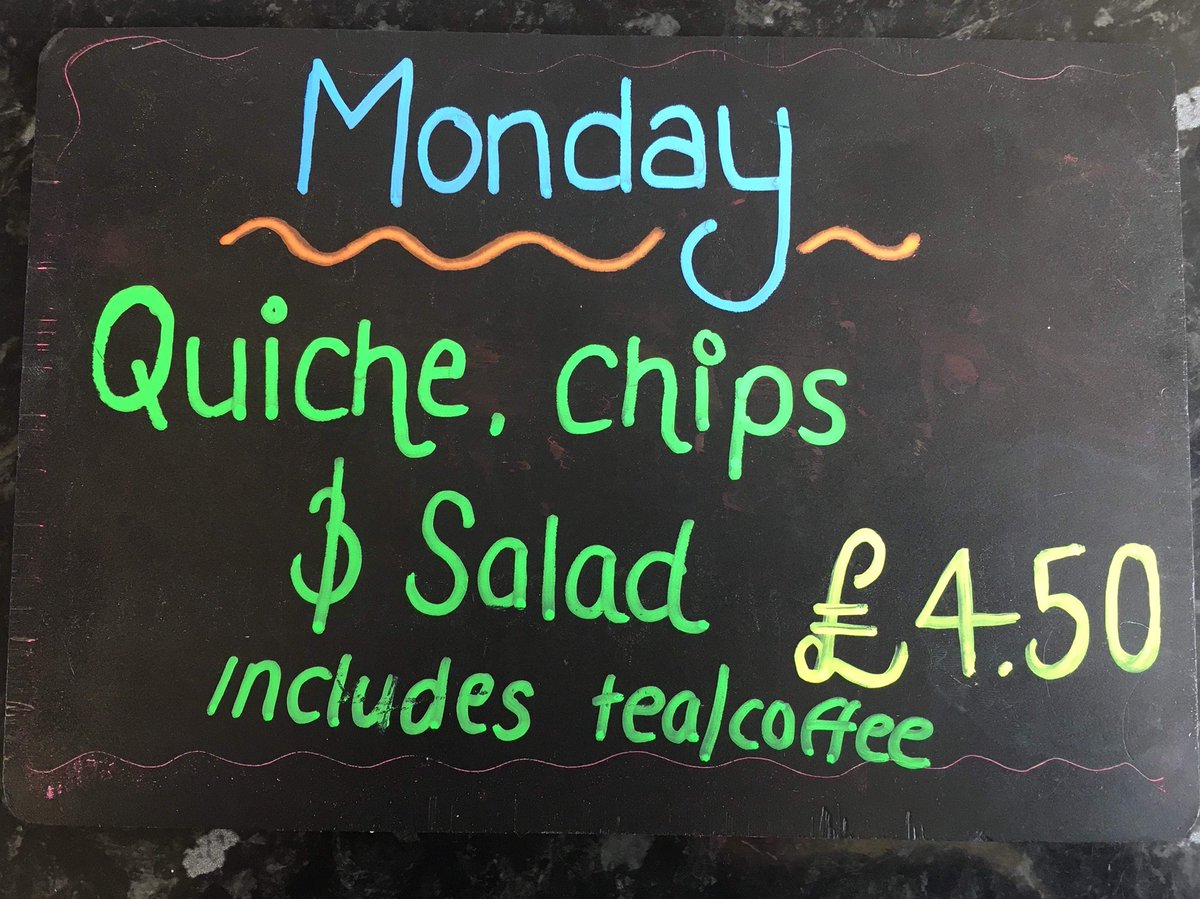 Monday
Quiche, chips
& Salad £4.50
includes tea/coffee